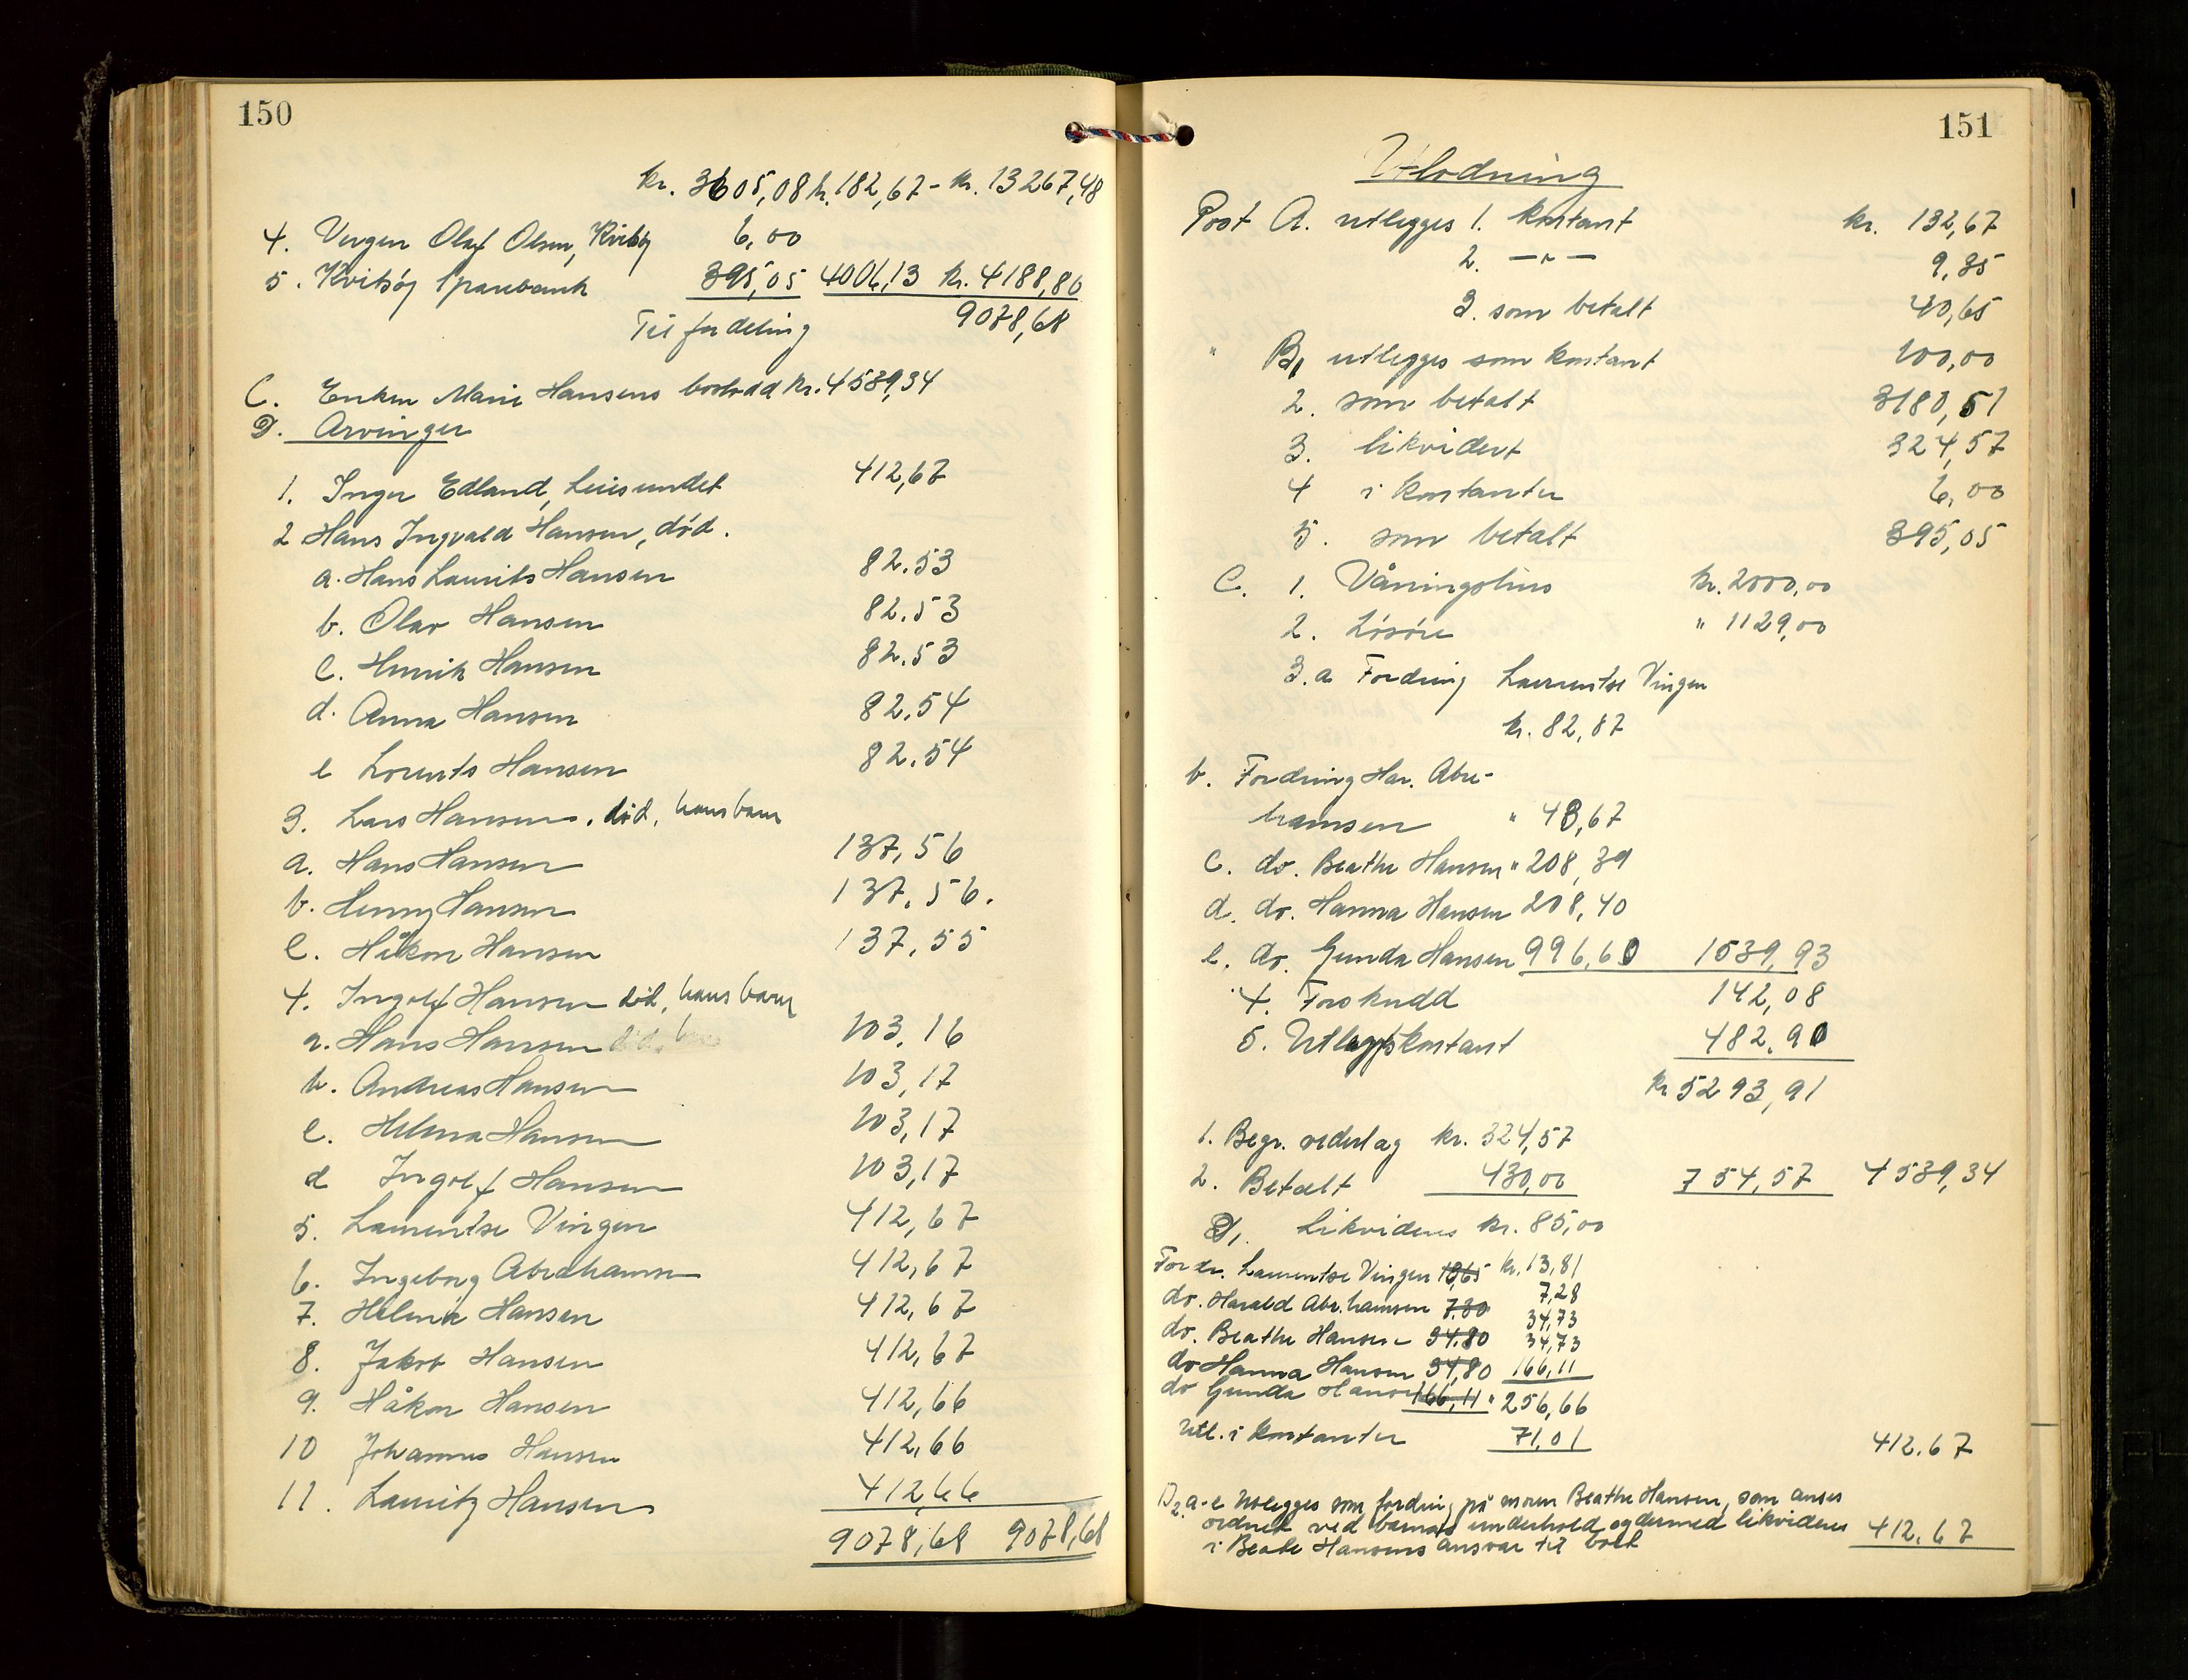 150
kr. 3605,08 kr. 182,67 - kr. 13267,48
4. Vergen Olaf Olsen, Kvitsøy 6,00
5. Kvitsøy Sparebank 395,05 4006,13 kr. 4188,80
Til fordeling 9078,68
C. Enken Marie Hansens boslodd kr. 4539,34
D. Arvinger
1. Inger Edland, 412,67
2 Hans Ingvald Hansen, død.
a. Hans Laurits Hansen 82.53
b. Olav Hansen 82.53
c. Henrik Hansen 82.53
d. Anna Hansen 82.54
e Lorents Hansen 82.54
3. Lars Hansen, død, hans barn
a. Hans Hansen 137,56
b. Henny Hansen 137,56.
c. Håkon Hansen 137,55
4. Ingolf Hansen død, hans barn
a. Hans Hansen 103,16
b. Andreas Hansen 103,17
c. Helena Hansen 103,17
d Ingolf Hansen 103,17
5. Laurentse Vingen 412,67
6. Ingeborg Abrahamsen 412,67
7. Helena Hansen 412,67
8. Jakob Hansen 412,67
9. Håkon Hansen 412,66
10 Johannes Hansen 412,66
11. Lauritz Hansen 412,66
9078,68 9078,68
151
Utlodning
Post A. utlegges 1. kontant kr. 132,67
2. —"— 9,35
3. som betalt 40,65
" B, utlegges som kontant 100,00
2. som betalt 3180,51
3. likvidert 324,57
4 i kontanter 6,00
5. som betalt 395,05
C. 1. Våningshus kr. 2000,00
2. Løsøre " 1129,00
3.a Fordring Laurentse Vingen
kr. 82,87
b. Fordring Har. Abra-
hamsen " 43,67
c. do. Beathe Hansen " 208,39
d. do. Hanna Hansen 208,40
e. do. Gunda Hansen 996,60 1539,93
4. Forskudd 142,08
5. Utlagt kontant 482.90
kr 5293,91
1. Begr. vederlag kr. 324,57
2. Betalt 430,00 754,57 4539,34
D1. Likvideres kr. 85,00
Fordr. Laurentse Vingen kr. 13,81
do. Harald Abrahamsen 7,30 7,28
do. Beathe Hansen 34,80 34,73
do Hanna Hansen 34,80 34,73
do Gunda Hansen 166,11 166,11
" 256,66
Utl. i kontanter 71,01 412.67
D2. a-e Utlegges som fordring på moren Beathe Hansen, som anses
ordnet ved barnas underhold og dermed likvideres
i Beate Hansens ansvar til boet 412.67